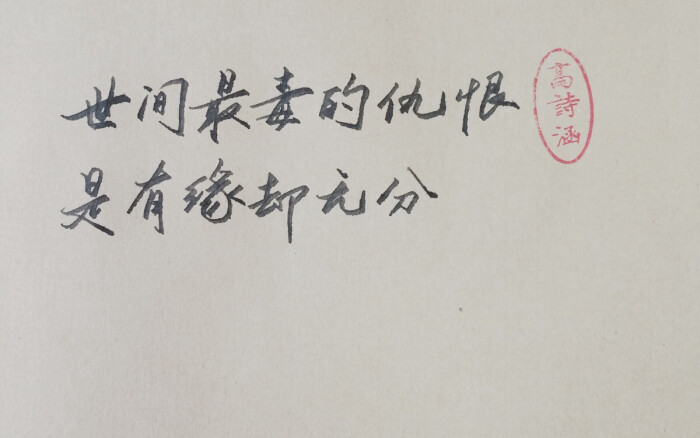 世间最毒的仇恨
是有缘却无分
高詩涵